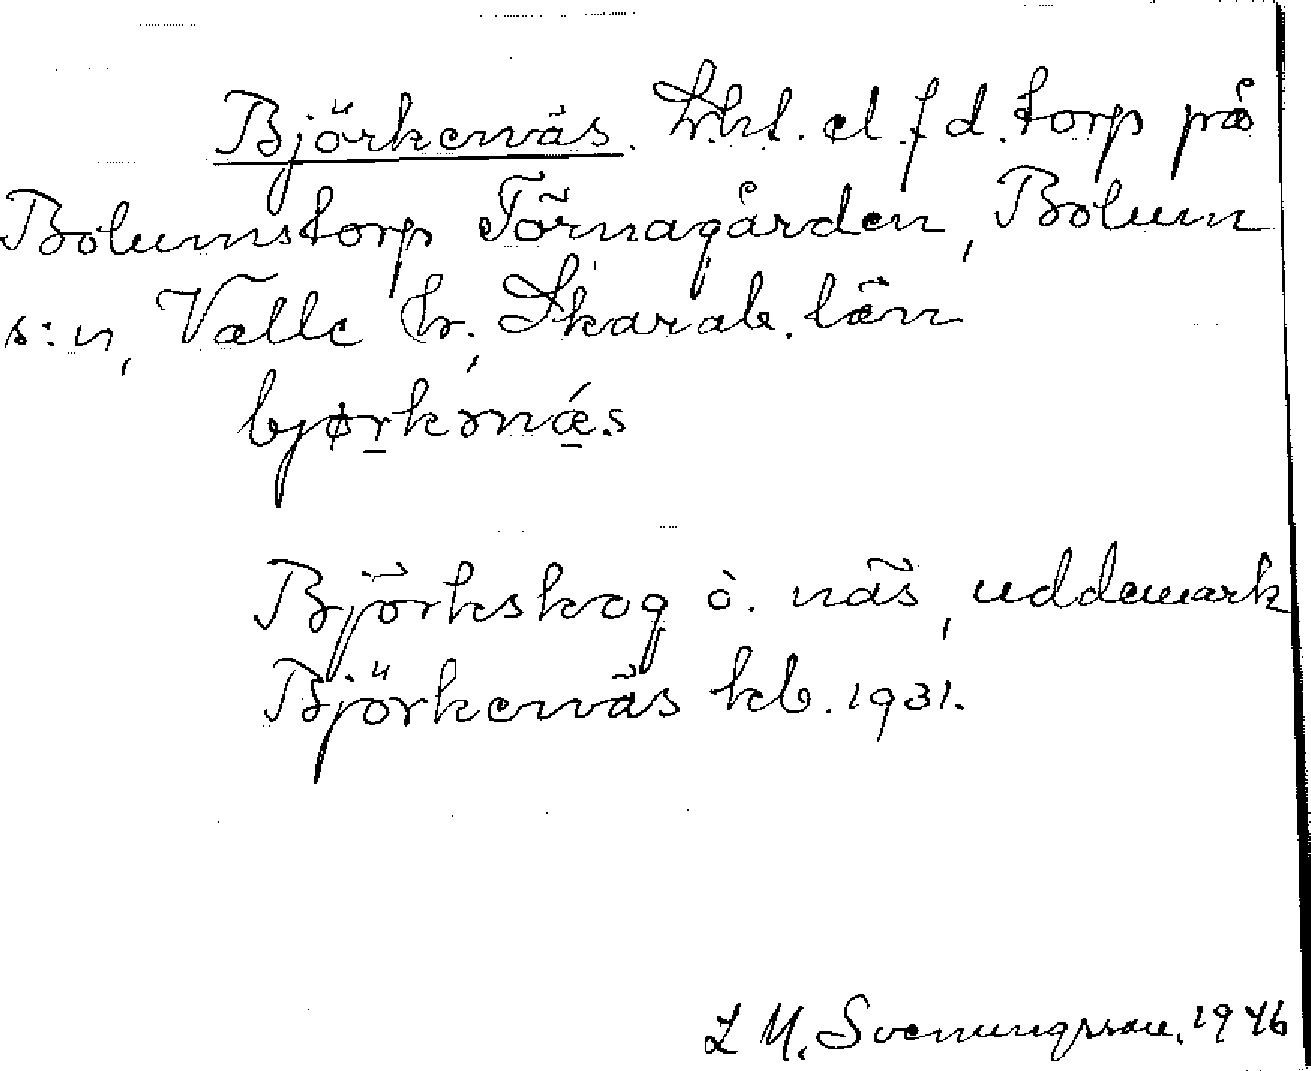 Björkenäs. Lht. el. f.d. torp på
Bolumstorp Törnagården, Bolum
s:n, Valle hr, Skarab. län
bjørkənǽs
Björkskog o. näs, uddemark
Björkenäs kb. 1931.
L M. Svenungsson. 1946